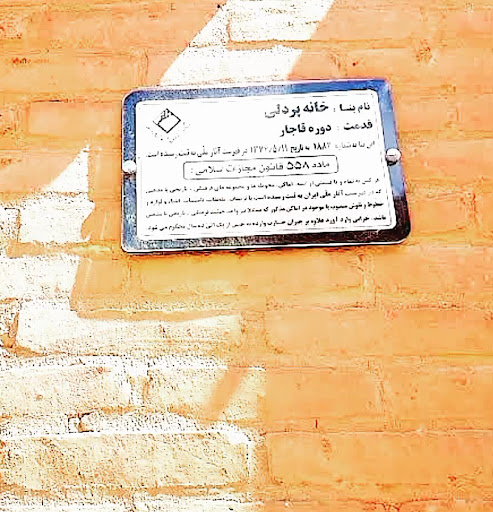 نام بنا : خانه پردلی
قدمت : دوره قاجار
این بنا به شماره ۱۸۸۲ به تاریخ ۱۳۷۶/۵/۱۱ در فهرست آثار ملی به ثبت رسیده است
ماده ۵۵۸ قانون مجازات اسلامی :
هر کس به تمام یا قسمتی از ابنیه، اماکن، محوطه ها و مجموعه های فرهنگی - تاریخی یا مذهبی
که در فهرست آثار ملی ایران به ثبت رسیده است یا تزئینات، ملحقات، تاسیسات، اشیاء و لوازم و
خطوط و نقوش منصوب یا موجود در اماکن مذکور که مستقلا نیز واجد حیثیت فرهنگی - تاریخی یا مذهبی
باشد، خرابی وارد آورد علاوه بر جبران خسارت وارده به حبس از یک الی ده سال محکوم می شود